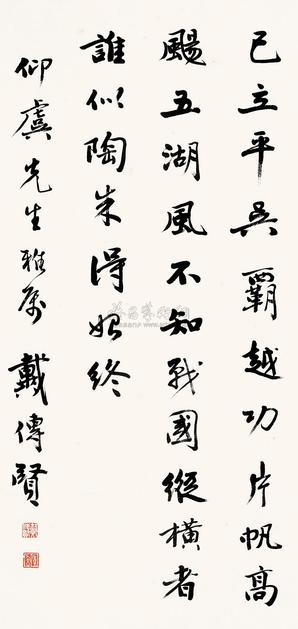 已立平吳霸越功片帆高
颺五湖風不知戰國縱橫者
誰似陶朱得始終
仰虞先生雅屬 戴傳賢